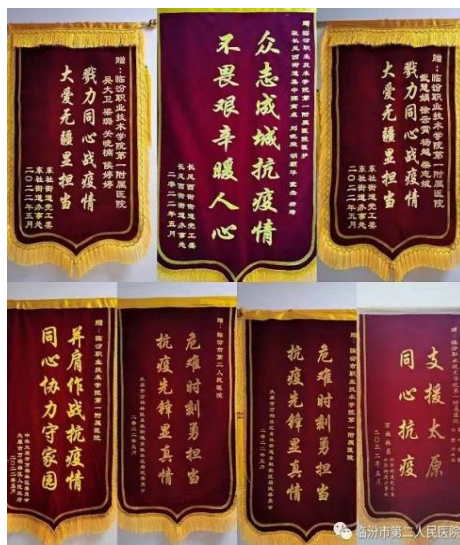 赠：临汾职业技术学院第一附属医院
吴大卫 梁璐 关晓楠 侯婷婷
戮力同心战疫情
大爱无疆显担当
东社街道党工委
东社街道办事处
二〇二二年五月
赠临汾职业技术学院第一附属医院医护
众志成城抗疫情
不畏艰辛暖人心
长风西街街道党工委
长风西街街道办事处
二〇二二年五月
赠：临汾职业技术学院第一附属医院
戮力同心战疫情
大爱无疆显担当
东社街道党工委
东社街道办事处
二〇二二年五月
赠：临汾职业技术学院第一附属医院
并肩作战抗疫情
同心协力守家园
二〇二二年五月
赠：临汾市第二人民医院
危难时刻勇担当
抗疫先锋显真情
二〇二二年五月
赠：临汾职业技术学院第一附属医院
危难时刻勇担当
抗疫先锋显真情
二〇二二年五月
支援太原
同心抗疫
万柏林区
二〇二二年五月
临汾市第二人民医院